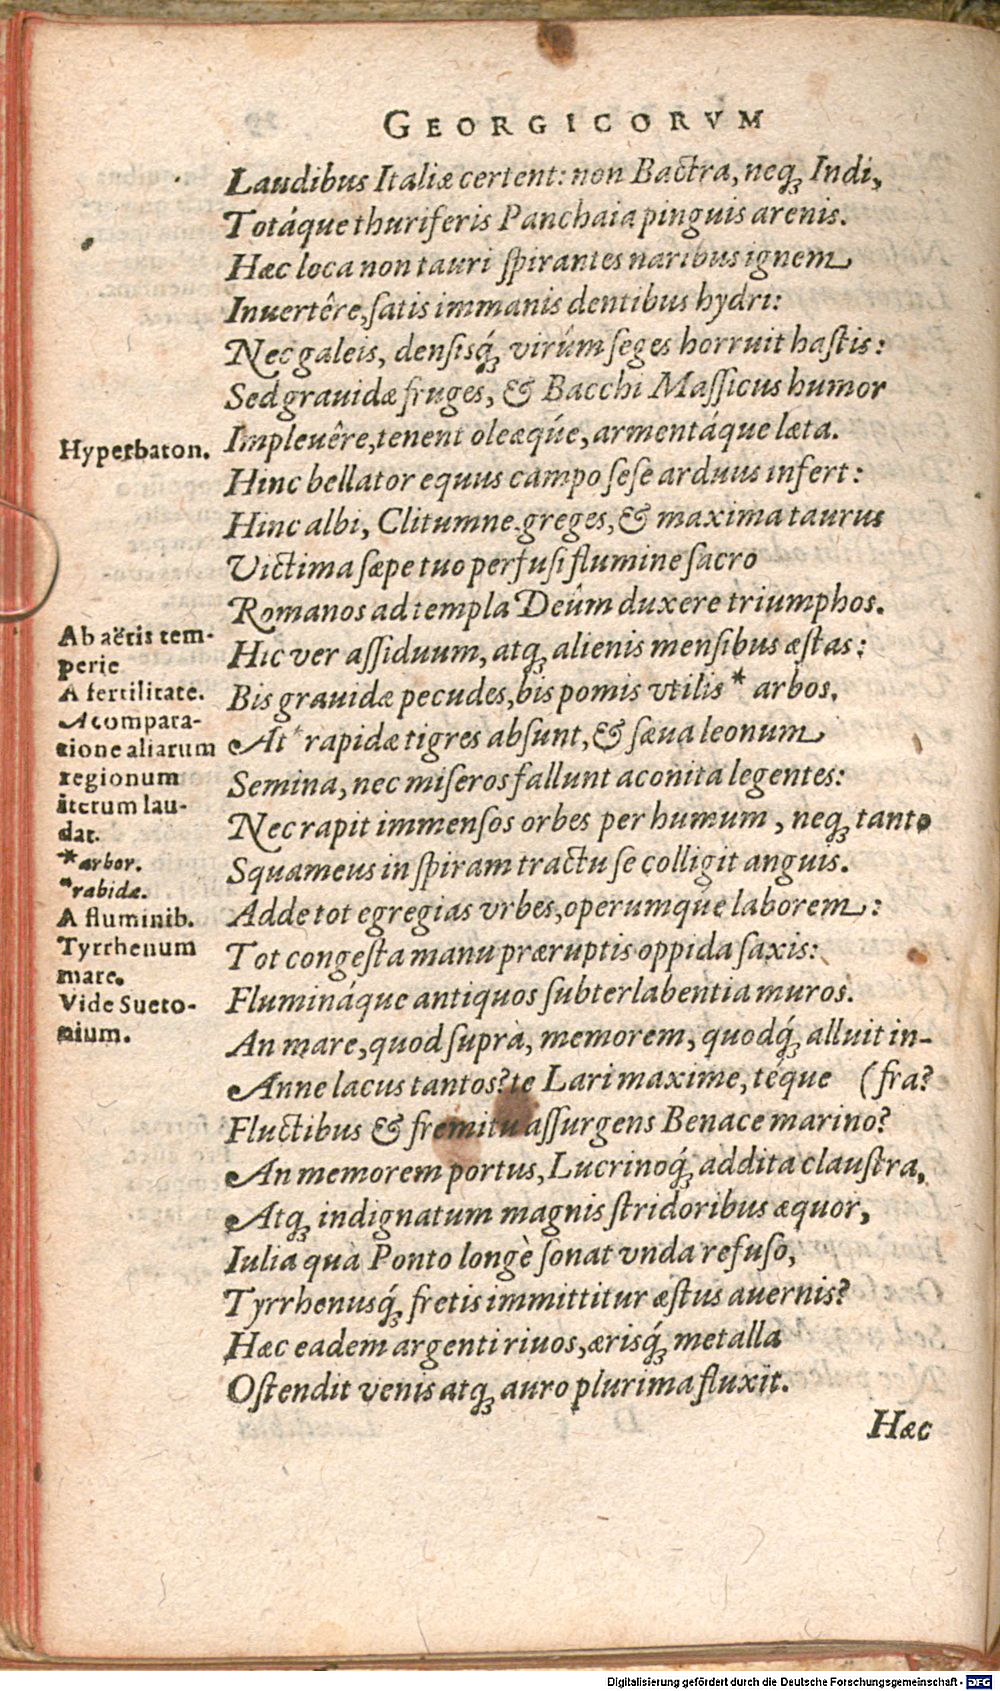 GEORGICORVM
Laudibus Italiæ certent: non Bactra, neq; Indi,
Totáque thuriferis Panchaia pinguis arenis.
Hæc loca non tauri spirantes naribus ignem
Inuertêre, satis immanis dentibus hydri:
Nec galeis, densisq́; virûm seges horruit hastis:
Sed grauidæ fruges, & Bacchi Massicus humor
Hyperbaton.
Impleuêre, tenent oleæq́ue, armentáque læta.
Hinc bellator equus campo sese arduus infert:
Hinc albi, Clitumne, greges, & maxima taurus
Victima sæpe tuo perfusi flumine sacro
Romanos ad templa Deûm duxere triumphos.
Ab aëris tem-
perie
A fertilitate.
A compara-
tione aliarum
regionum
iterum lau-
dat.
*arbor.
*rabidæ.
A fluminib.
Tyrrhenum
mare.
Vide Sueto-
nium.
Hic ver assiduum, atq; alienis mensibus æstas:
Bis grauidæ pecudes, bis pomis vtilis * arbos.
At * rapidæ tigres absunt, & sæua leonum
Semina, nec miseros fallunt aconita legentes:
Nec rapit immensos orbes per humum, neq; tanto
Squameus in spiram tractu se colligit anguis.
Adde tot egregias vrbes, operumque laborem:
Tot congesta manu præruptis oppida saxis:
Flumináque antiquos subterlabentia muros.
An mare, quod suprà, memorem, quodq́; alluit in-
Anne lacus tantos? te Lari maxime, téque (fra?
Fluctibus & fremitu assurgens Benace marino?
An memorem portus, Lucrinoq́; addita claustra,
Atq; indignatum magnis stridoribus æquor,
Iulia quà Ponto longè sonat vnda refuso,
Tyrrhenusq́; fretis immittitur æstus auernis?
Hæc eadem argenti riuos, ærisq́; metalla
Ostendit venis atq; auro plurima fluxit.
Hæc
Digitalisierung gefördert durch die Deutsche Forschungsgemeinschaft - DFG